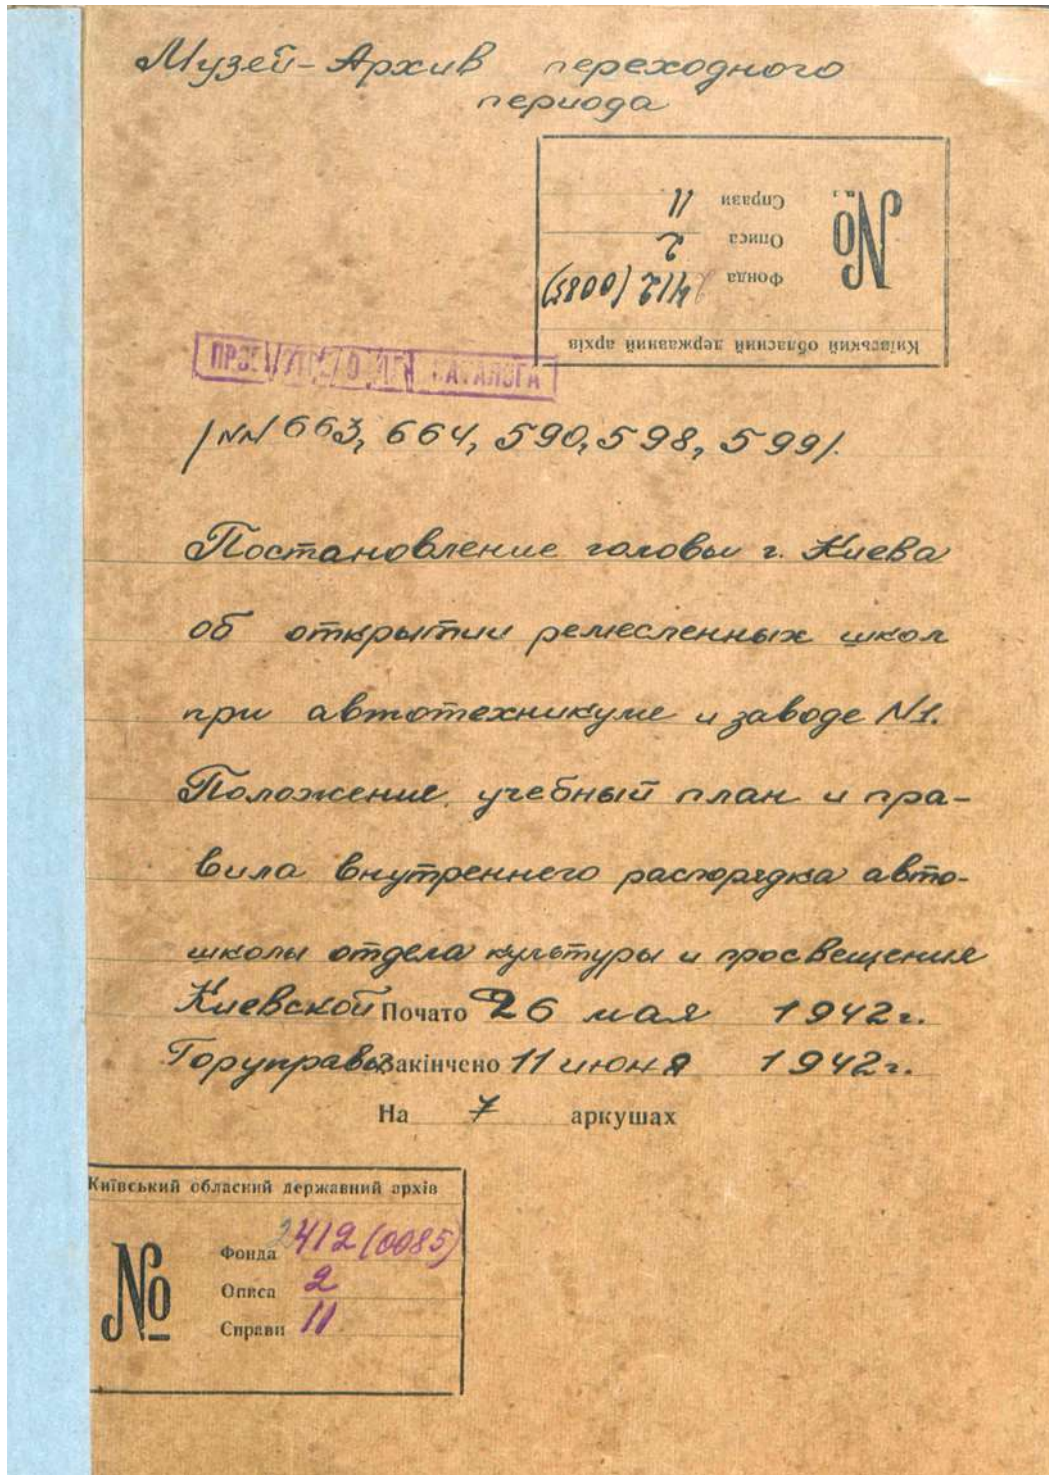 Музей-Архив переходного
периода
Київський обласний державний архів
№
Фонда 2412 (0085)
Описа 2
Справи 11
КАТАЛОГА
/NN 663, 664, 590, 598, 599/.
Постановление головы г. Киева
об открытии ремесленных школ
при автотехникуме и заводе N1.
Положение, учебный план и пра-
вила внутреннего распорядка авто-
школы отдела культуры и просвещения
Киевской Почато 26 мая 1942г.
Горуправы Закінчено 11 июня 1942г.
На 7 аркушах
Київський обласний державний архів
№
Фонда 2412 (0085)
Описа 2
Справи 11